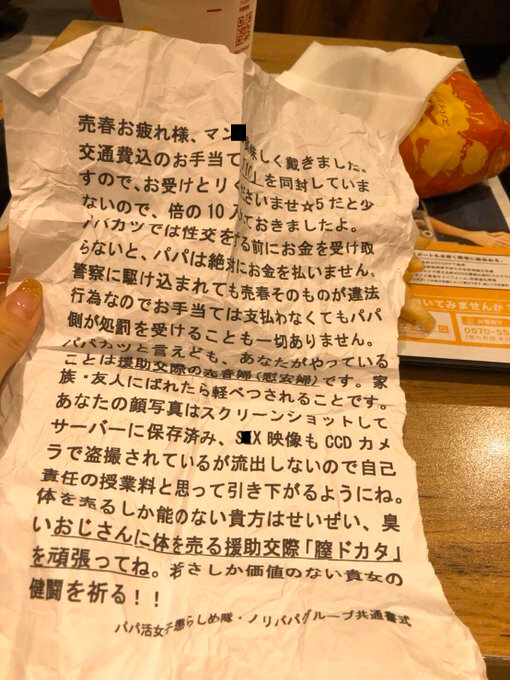 売春お疲れ様、マン 味しく戴きました。
交通費込のお手当て 」を同封していま
すので、お受けとりくださいませ☆5だと少
ないので、倍の10入 ておきましたよ。
パパカツでは性交をする前にお金を受け取
らないと、パパは絶対にお金を払いません。
警察に駆け込まれても売春そのものが違法
行為なのでお手当ては支払わなくてもパパ
側が処罰を受けることも一切ありません。
パパカツと言えども、あなたがやっている
ことは援助交際の売春婦(慰安婦)です。家
族・友人にばれたら軽べつされることです。
あなたの顔写真はスクリーンショットして
サーバーに保存済み、S X 映像も CCD カメ
ラで盗撮されているが流出しないので自己
責任の授業料と思って引き下がるようにね。
体を売るしか能のない貴方はせいぜい、臭
いおじさんに体を売る援助交際「膣ドカタ」
を頑張ってね。若さしか価値のない貴女の
健闘を祈る!!
パパ活女子懲らしめ隊・ノリパパグループ共通書式
スパイシ
いてみませんか
0570-55